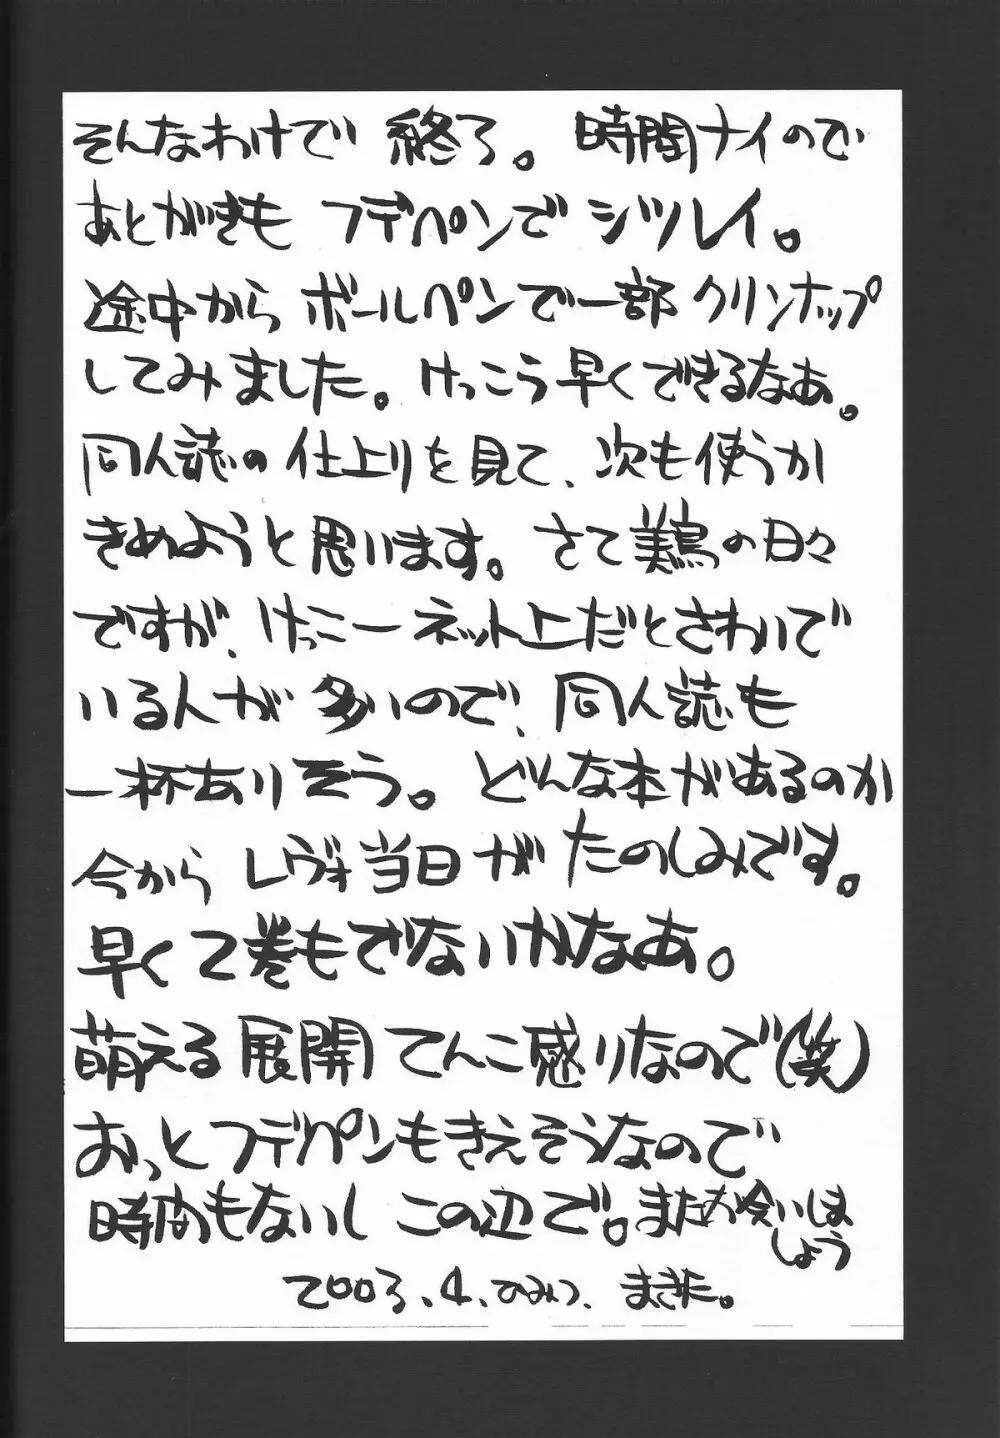 そんなわけで 終了。 時間ナイので
あとがきも フデペンで シツレイ。
途中から ボールペンで一部 クリンナップ
してみました。けっこう早くできるなあ。
同人誌の 仕上りを見て、次も使うか
きめようと思います。 さて 美鳥の日々
ですが、けっこーネット上だとさわいで
いる人が 多いので、同人誌も
一杯ありそう。 どんな本があるのか
今から レヴォ当日が たのしみです。
早く2巻もでないかなあ。
萌える展開 てんこ盛りなので(笑)
おっと フデペンもきえそうなので
時間もないし この辺で。またお会いしま
しょう
2003.4.ひみつ、 まきた。